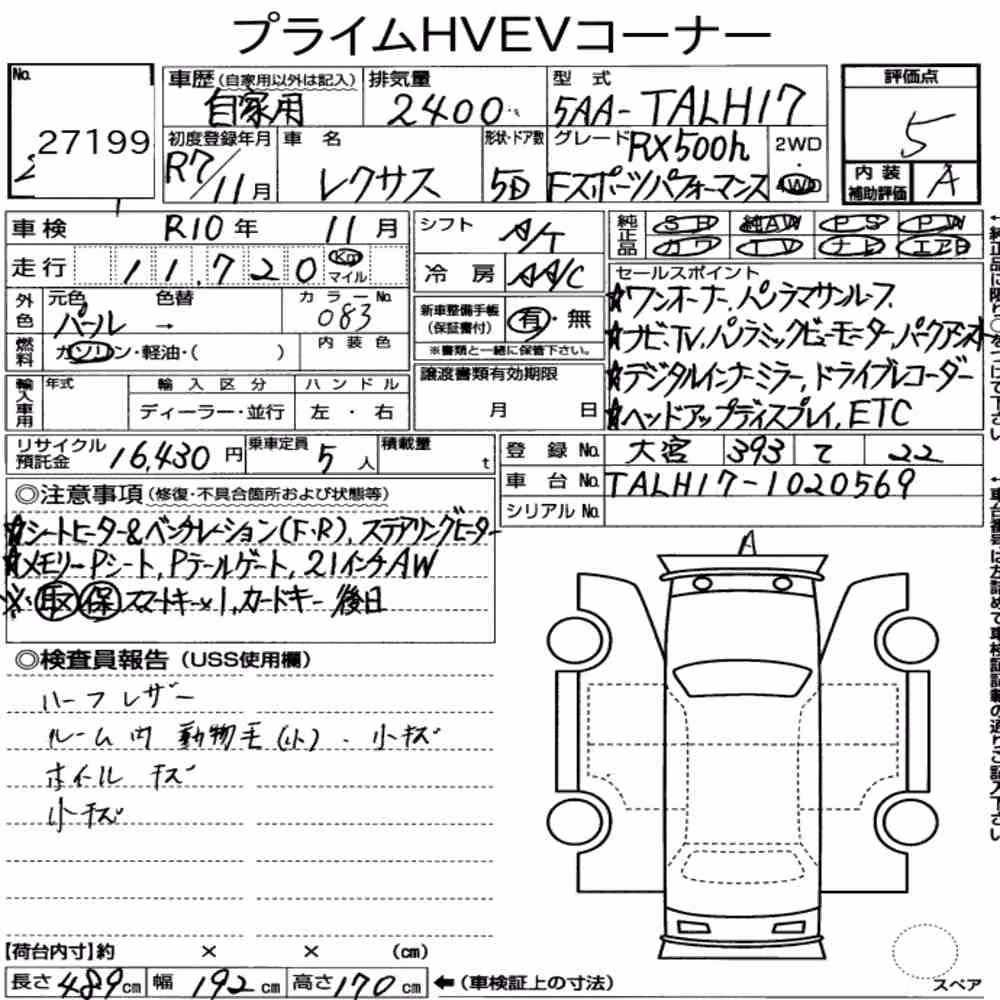 プライムHVEVコーナー
No.
27199
車歴(自家用以外は記入) 自家用
排気量 2400
型式 5AA-TALH17
評価点 5
初度登録年月 R7/11月
車名 レクサス
形状・ドア数 5D
グレード RX500h
Fスポーツパフォーマンス
2WD・4WD
内装補助評価 A
車検 R10年 11月
シフト A/T
純正品 SR 純AW PS PW
カワ TV ナビ エアB
走行 11,720 Km マイル
冷房 AA/C
セールスポイント
☆ワンオーナー、パノラマサンルーフ
☆ナビ、TV、パノラミックビューモニター、パークアシスト
☆デジタルインナーミラー、ドライブレコーダー
☆ヘッドアップディスプレイ、ETC
外色 元色 パール 色替 → カラーNo. 083
内装色
新車整備手帳(保証書付) 有・無
※書類と一緒に保管下さい。
燃料 ガソリン・軽油・( )
譲渡書類有効期限 月 日
輸入車用 年式 輸入区分 ディーラー・並行 ハンドル 左・右
リサイクル預託金 16,430円
乗車定員 5人
積載量 t
登録No. 大宮 393 て 22
車台No. TALH17-1020569
シリアルNo.
◎注意事項(修復・不具合箇所および状態等)
☆シートヒーター&ベンチレーション(F・R)、ステアリングヒーター
☆メモリーPシート、Pテールゲート、21インチAW
※取保スマートキー×1、カードキー後日
◎検査員報告(USS使用欄)
ハーフレザー
ルーム内 動物毛(小)、小キズ
ホイール キズ
小キズ
A
【荷台内寸】約 × × (cm)
長さ489cm 幅192cm 高さ170cm ←(車検証上の寸法)
スペア